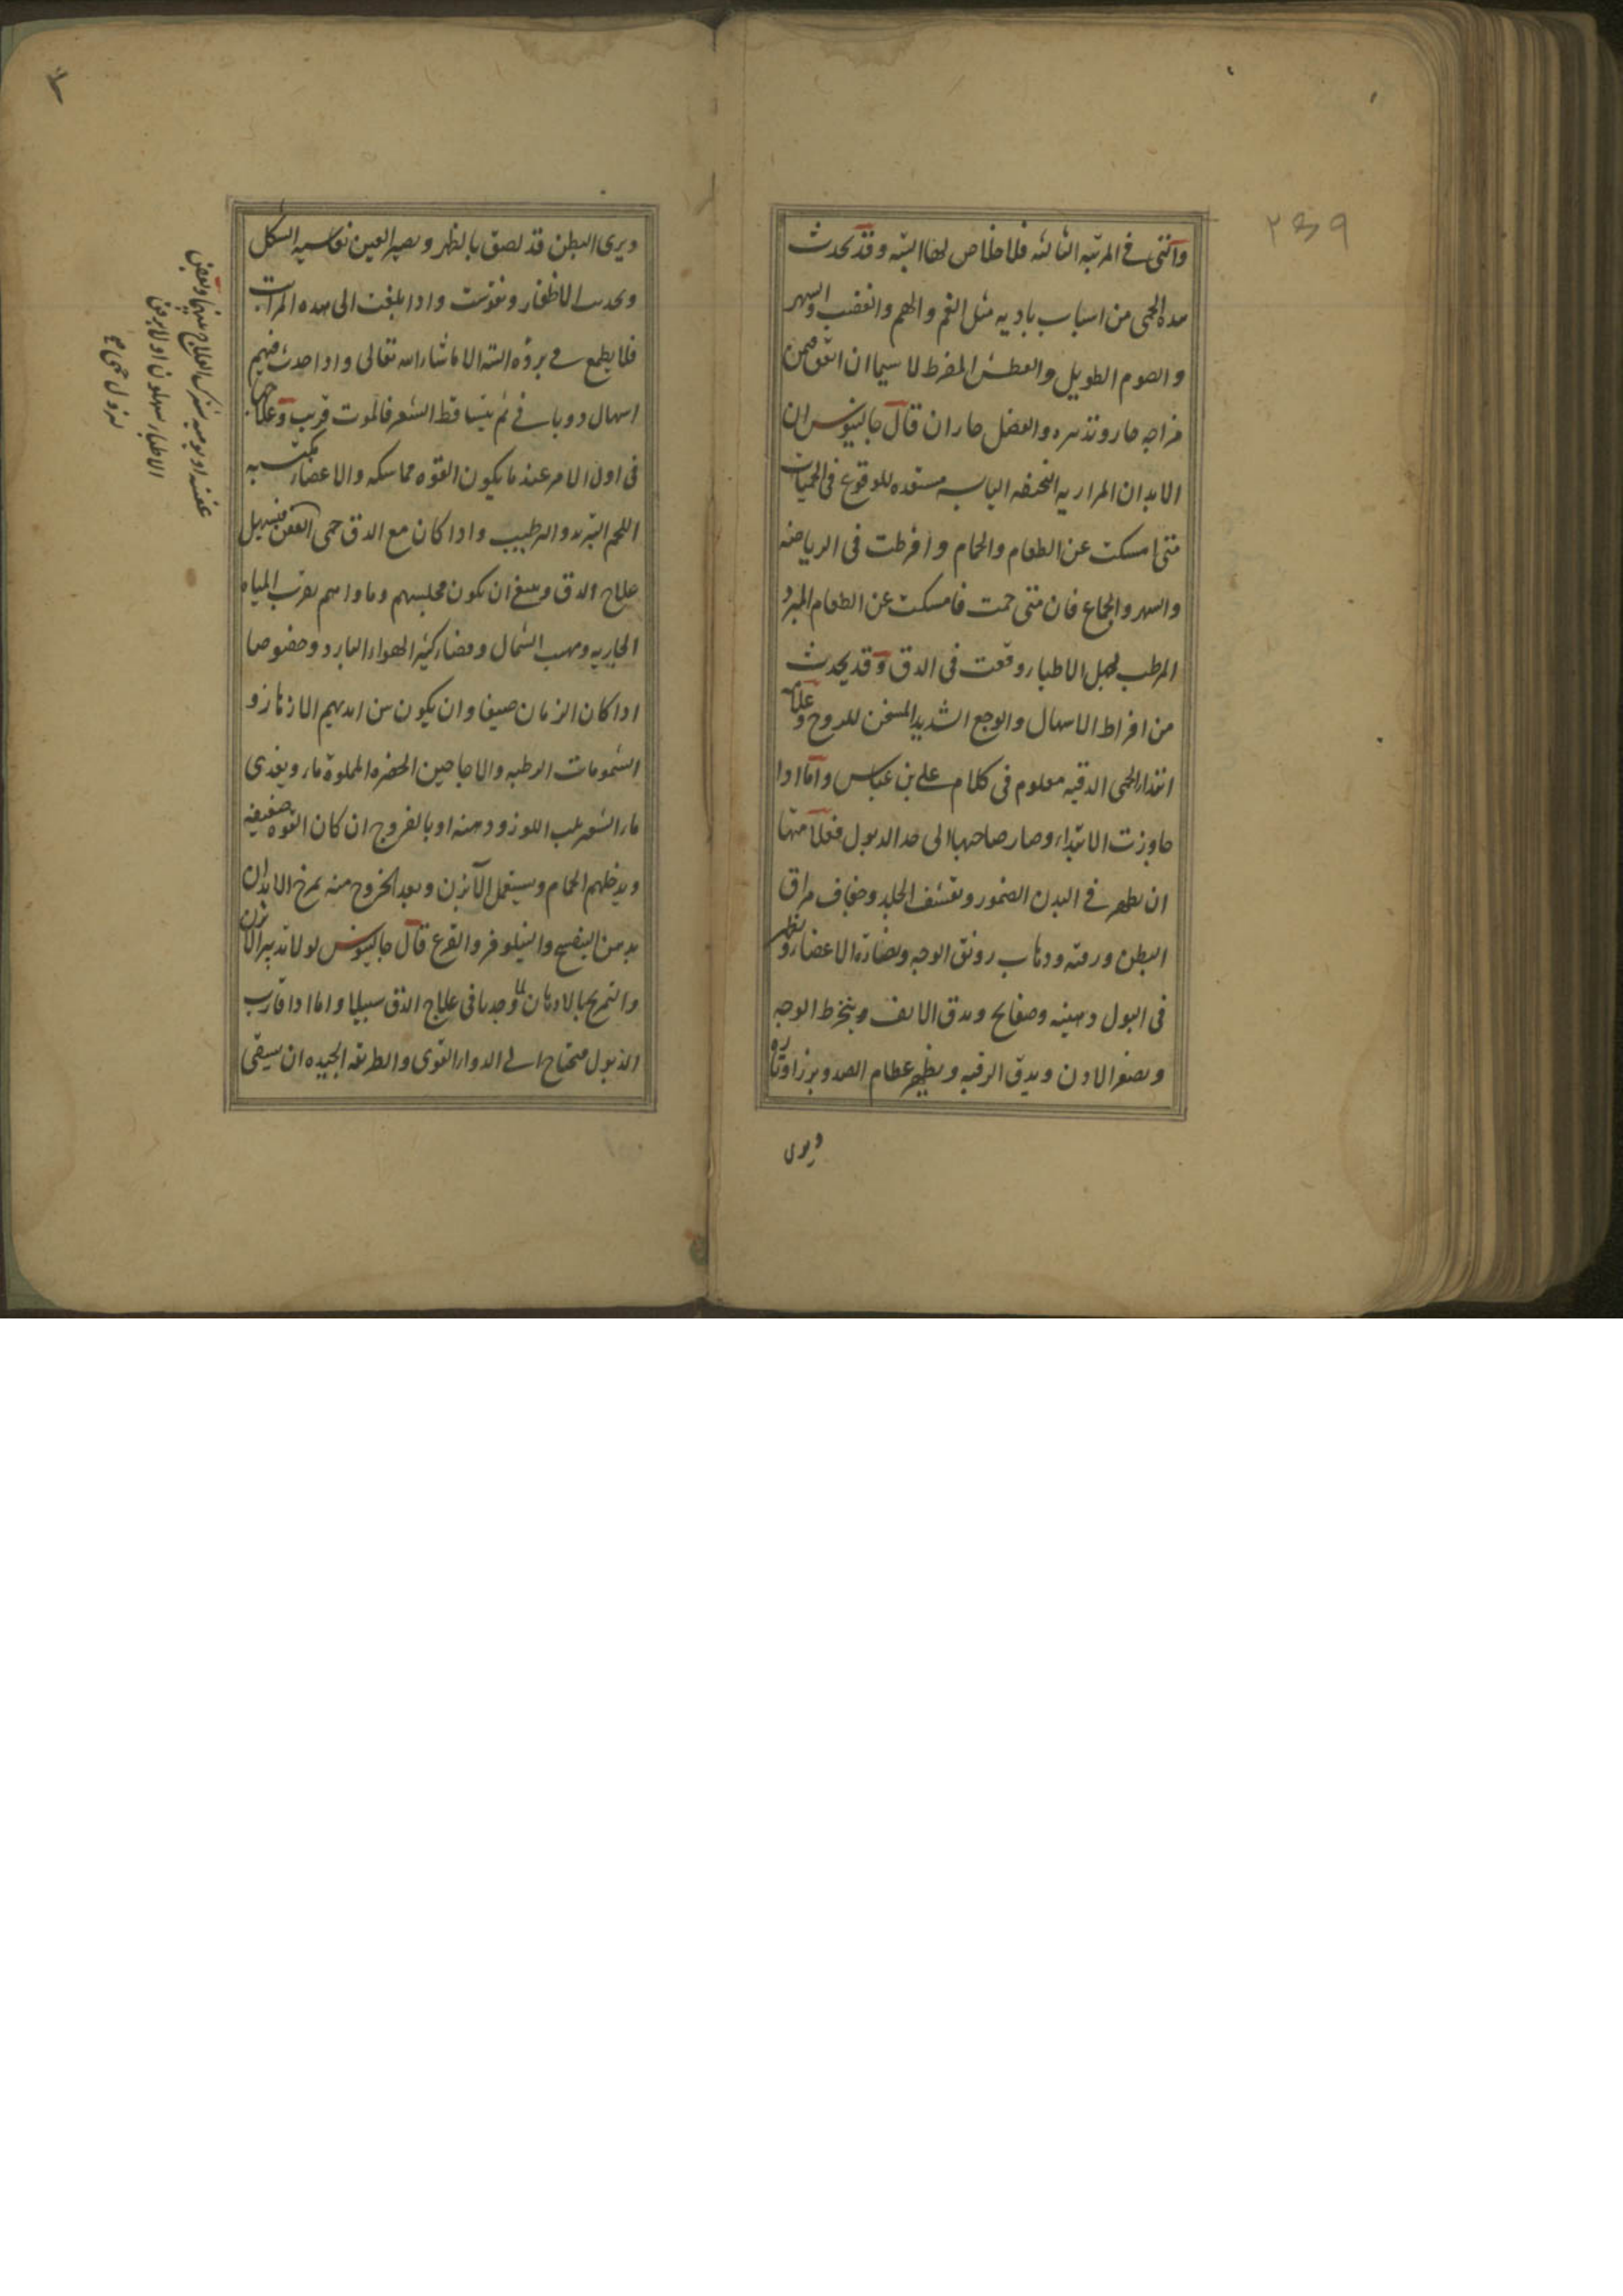 ٢٣٩
والتى فى المرتبه الثالثه فلا خلاص لها البته وقد يحدث
هذه الحمى من اسباب باديه مثل الغم والهم والغضب والسهر
والصوم الطويل والعطش المفرط لا سيما ان اتفق فيمن
مزاجه حار وتدبيره والفصل حاران قال جالينوس ان
الابدان المراريه النحيفه اليابسه مستعده للوقوع فى الحميات
متى امسكت عن الطعام والحمام وافرطت فى الرياضه
والسهر والجماع فان متى حمت فامسكت عن الطعام المبرد
المرطب لجهل الاطباء وقعت فى الدق وقد يحدث
من افراط الاسهال والوجع الشديد المسخن للروح وعلامه
ابتداء الحمى الدقيه معلوم فى كلام على بن عباس واما اذا
جاوزت الابتداء وصار صاحبها الى حد الذبول فعلامتها
ان يظهر فى البدن الضمور وتقشف الجلد وجفاف مراق
البطن ورقته وذهاب رونق الوجه ونضارة الاعضاء ويظهر
فى البول دهنيه وصفايح ويدق الانف وينخرط الوجه
ويصغر الاذن ويدق الرقبه ويظهر عظام الصدر وبرز اوتاره
ويرى
ويرى البطن قد لصق بالظهر ويصير العين نعاسيه الشكل
ويحدب الاظفار وتقوست واذا بلغت الى هذه المراتب
فلا يطمع فى برؤه البته الا ما شاء الله تعالى واذا حدث فيهم
اسهال ذوبانى ثم يتساقط الشعر فالموت قريب وعلاجها
فى اول الامر عند ما يكون القوه متماسكه والاعضاء مكتسيه
اللحم التبريد والترطيب واذا كان مع الدق حمى العفن فتبديل
علاج الدق وينبغى ان يكون مجلسهم وماواهم بقرب المياه
الجاريه ومهب الشمال وفضاء كثير الهواء البارد وخصوصا
اذا كان الزمان صيفا وان يكون بين ايديهم الازهار و
الشمومات الرطبه والاجاجين الخضره المملوة ماء ويغذى
ماء الشعير بلب اللوز ودهنه او بالفروج ان كان القوه ضعيفه
ويدخلهم الحمام ويستعمل الآبزن وبعد الخروج منه يمرخ الابدان
بدهن البنفسج والنيلوفر والقرع قال جالينوس لولا تدبير الابزن
والتمريخ بالادهان لما وجدنا فى علاج الدق سبيلا واما اذا قارب
الذبول فيحتاج الى الدواء القوى والطريقه الجيده ان يسقى